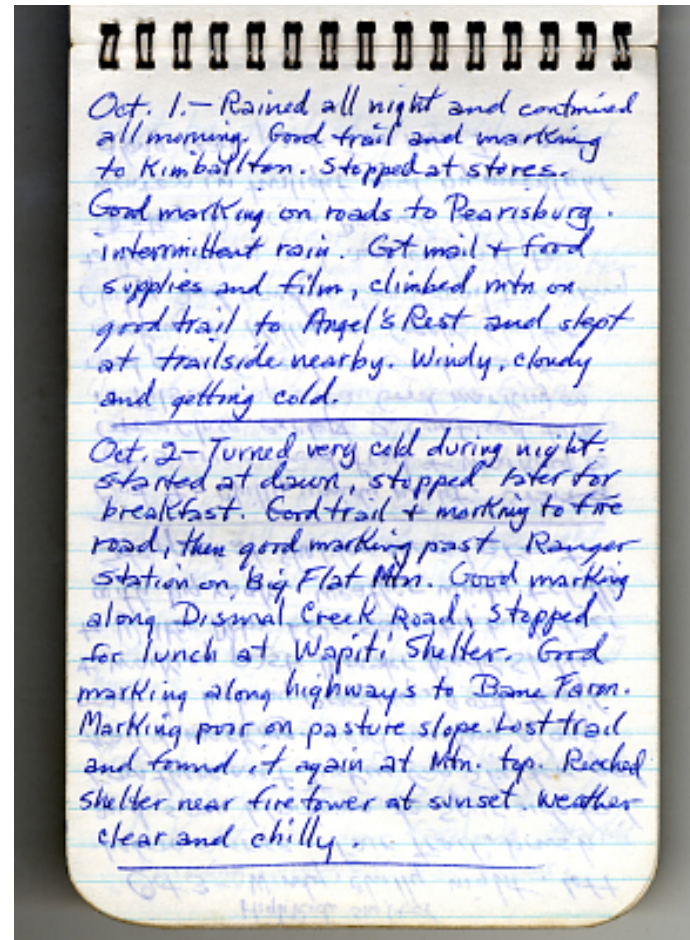 Oct. 1.— Rained all night and continued
all morning. Good trail and marking
to Kimballton. Stopped at stores.
Good marking on roads to Pearisburg.
intermittent rain. Got mail + food
supplies and film, climbed mtn on
good trail to Angel's Rest and slept
at trailside nearby. Windy, cloudy
and getting cold.
Oct. 2— Turned very cold during night.
started at dawn, stopped later for
breakfast. Good trail + marking to fire
road, then good marking past Ranger
station on Big Flat Mtn. Good marking
along Dismal Creek Road, stopped
for lunch at Wapiti Shelter. Good
marking along highways to Bane Farm.
Marking poor on pasture slope. Lost trail
and found it again at Mtn. top. Reached
shelter near fire tower at sunset. weather
clear and chilly.